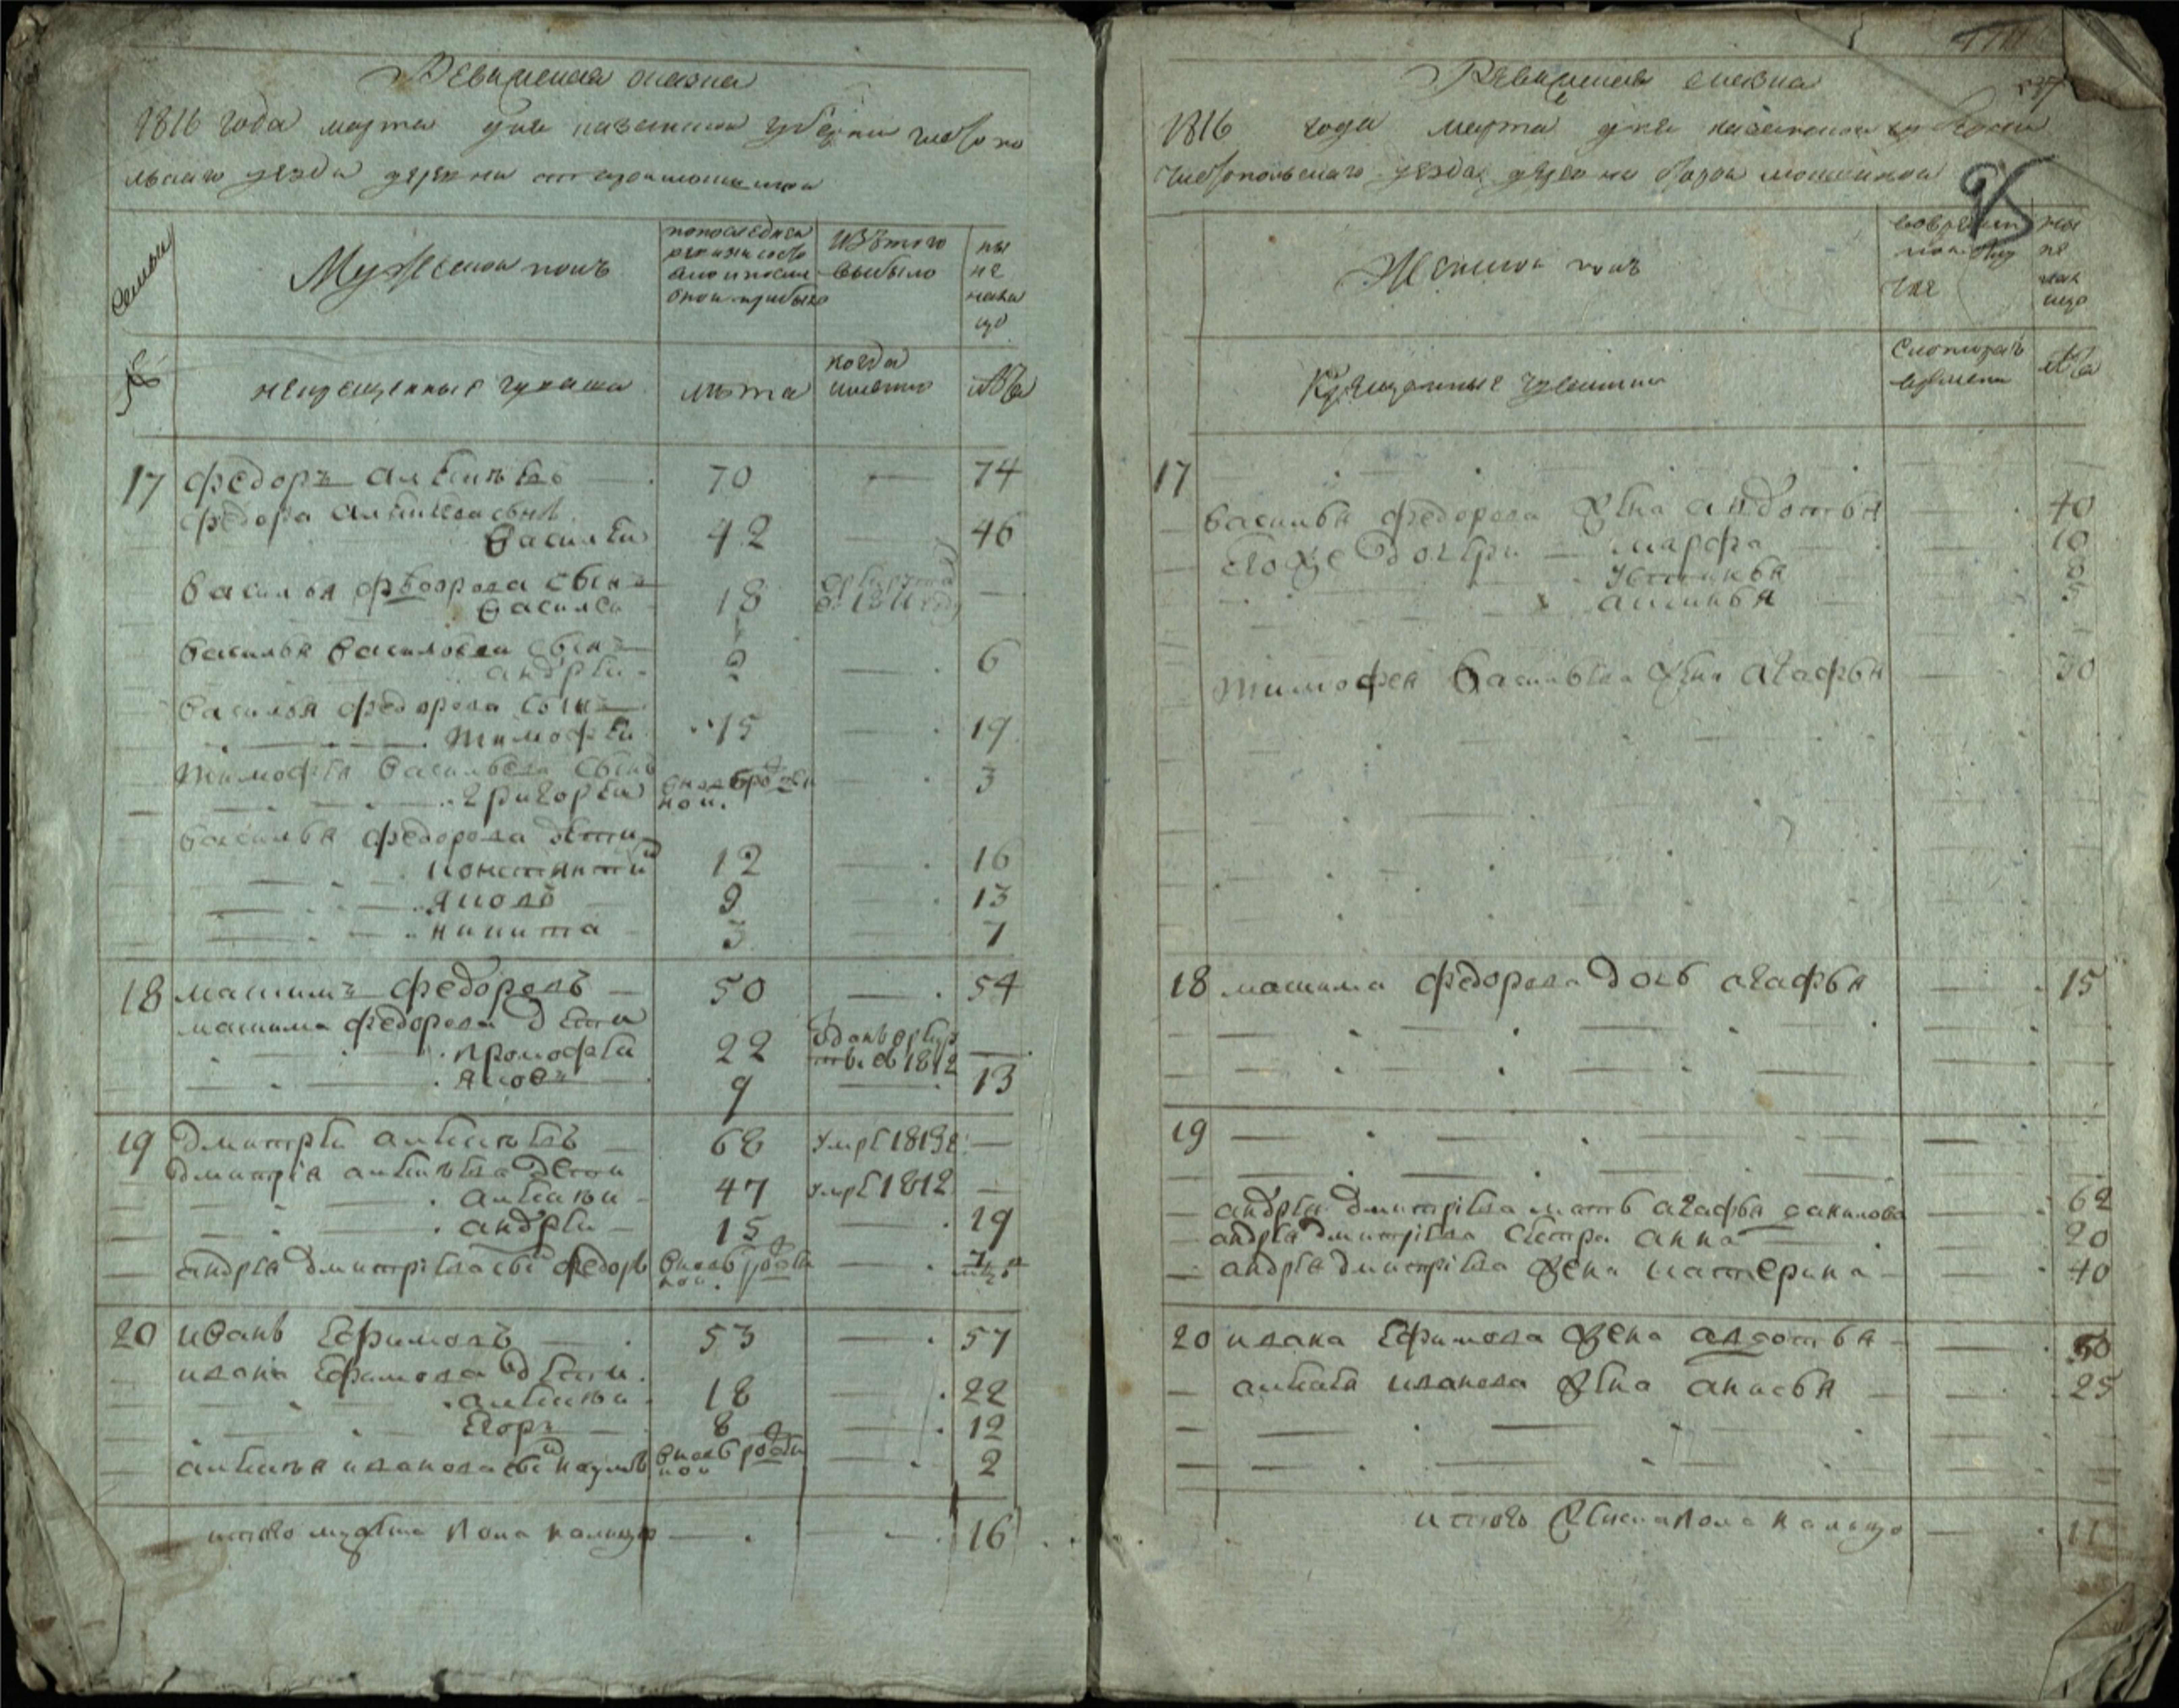 Ревижская сказка
1816 года марта дня казанской губернии чистопо
льскаго уезда деревни старой мокшиной
Семьи
Мужеской полъ
по последней
ревизии состо
яло и после
оной прибыло
изъ того
выбыло
ны
не
нали
цо
№
некрещенные чуваша
лѣта
когда
имянно
лѣта
17 федоръ алексѣевъ 70 — 74
федора алексѣева сынъ
василеи 42 — 46
василья федорова сынъ
василеи 18 —
василья василева сынъ
андреи 2 — 6
василья федорова сынъ
тимофеи 15 — 19
тимофея васильева сынъ
григореи вновь рожден
ной — 3
василья федорова дѣти
констянтин 12 — 16
яковъ 9 — 13
никита 3 — 7
18 максимъ федоровъ 50 — 54
максима федорова дѣти
прокофеи 22 —
яковъ 9 — 13
отданъ в рекру
ты в 1812
19 дмитреи алексѣевъ 68 умре 1813 г —
дмитрія алексѣева дети
алексеи 47 умре 1812 —
андреи 15 — 19
андрея дмитріева сынъ федоръ вновь рожден
ной —
20 иванъ ефимовъ 53 — 57
ивана ефимова дѣти
алексеи 18 — 22
егоръ 8 — 12
алексея иванова сынъ наумъ вновь рожден
ной — 2
итого мужеска пола налицо — — 16
Ревижская сказка
1816 года марта дня казанской губернии
чистопольскаго уезда деревни старой мокшиной
95
Женской полъ
во времян
ной отлу
чке
ны
не
нали
цо
Крещенные чувашки
с которагъ
времени
лѣта
17
василья федорова жена авдотья — 40
ево же дочери — марфа 10
устинья 8
аксинья 5
тимофея васильева жена агафья — 30
18 максима федорова дочь агафья — 15
19
андрея дмитріева мать агафья данилова — 62
андрея дмитріева сестра анна 20
андрея дмитріева жена катерина — 40
20 ивана ефимова жена авдотья — 50
алексея иванова жена анисья — 25
итого женска пола налицо — 11